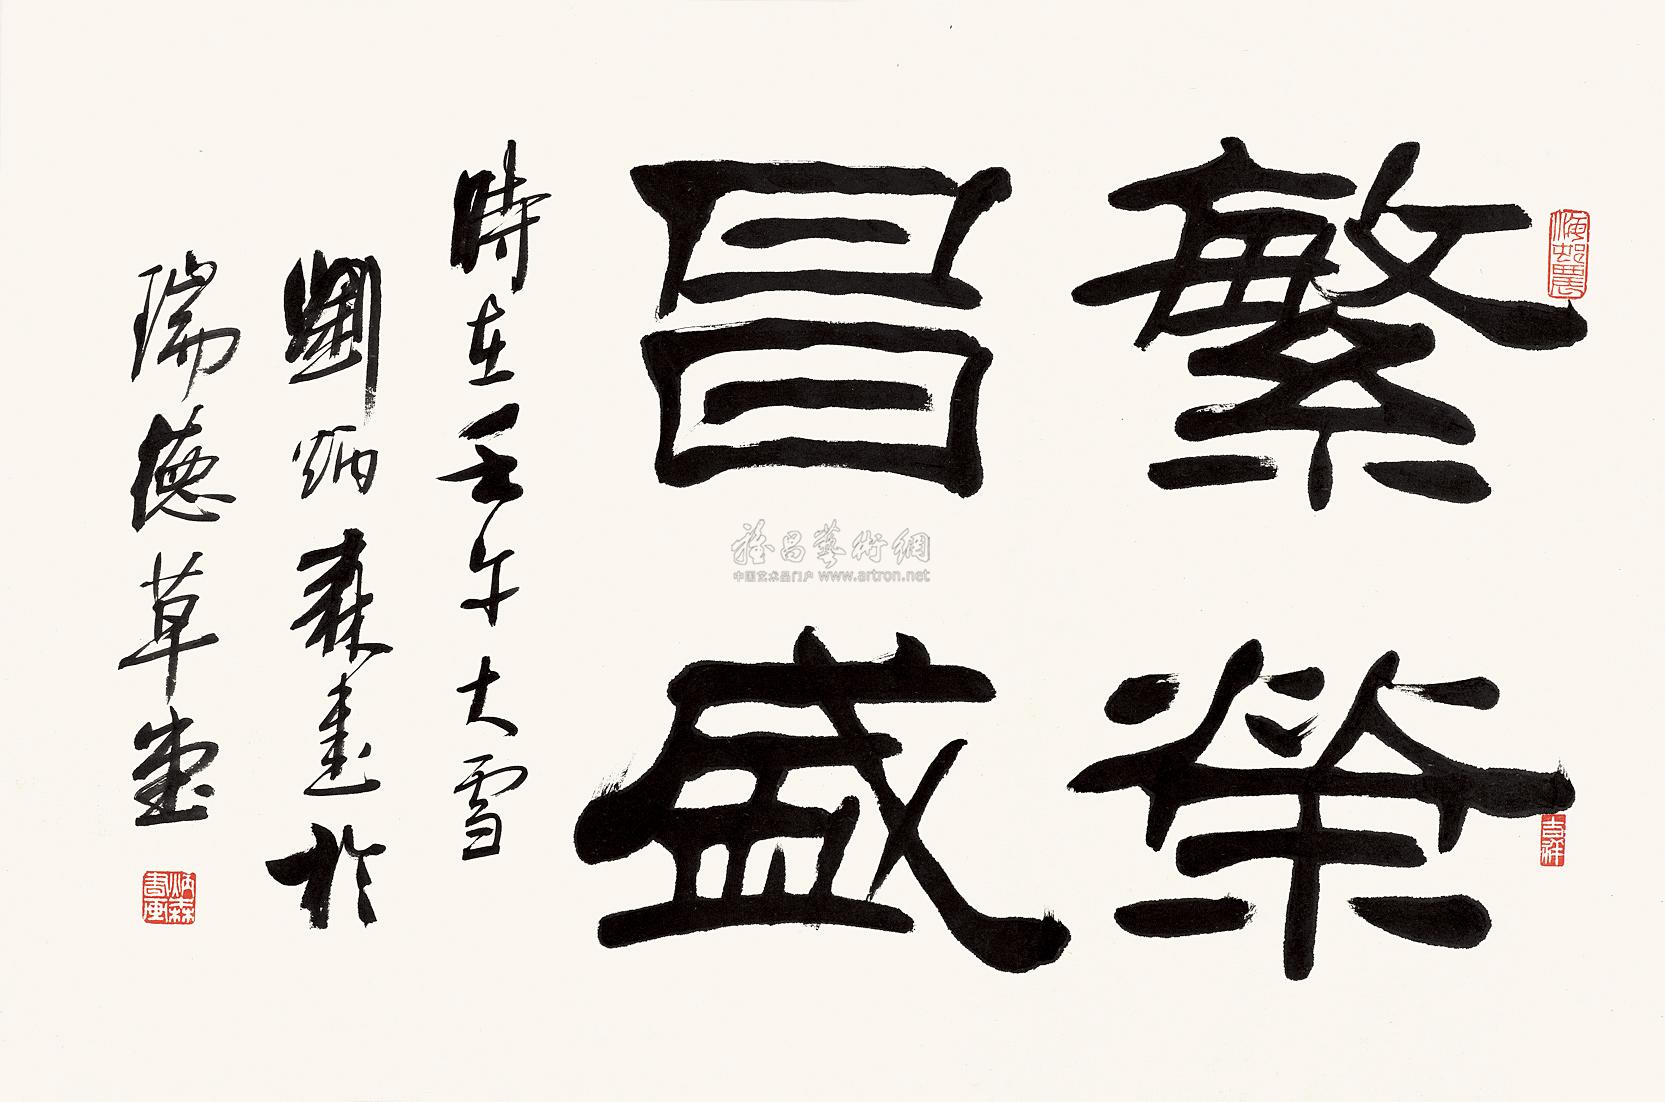 繁榮
昌盛
時在壬午大雪
劉炳森書於
瑞德草堂
吉祥
炳森
書畫
雅昌藝術網
中国艺术品门户 www.artron.net